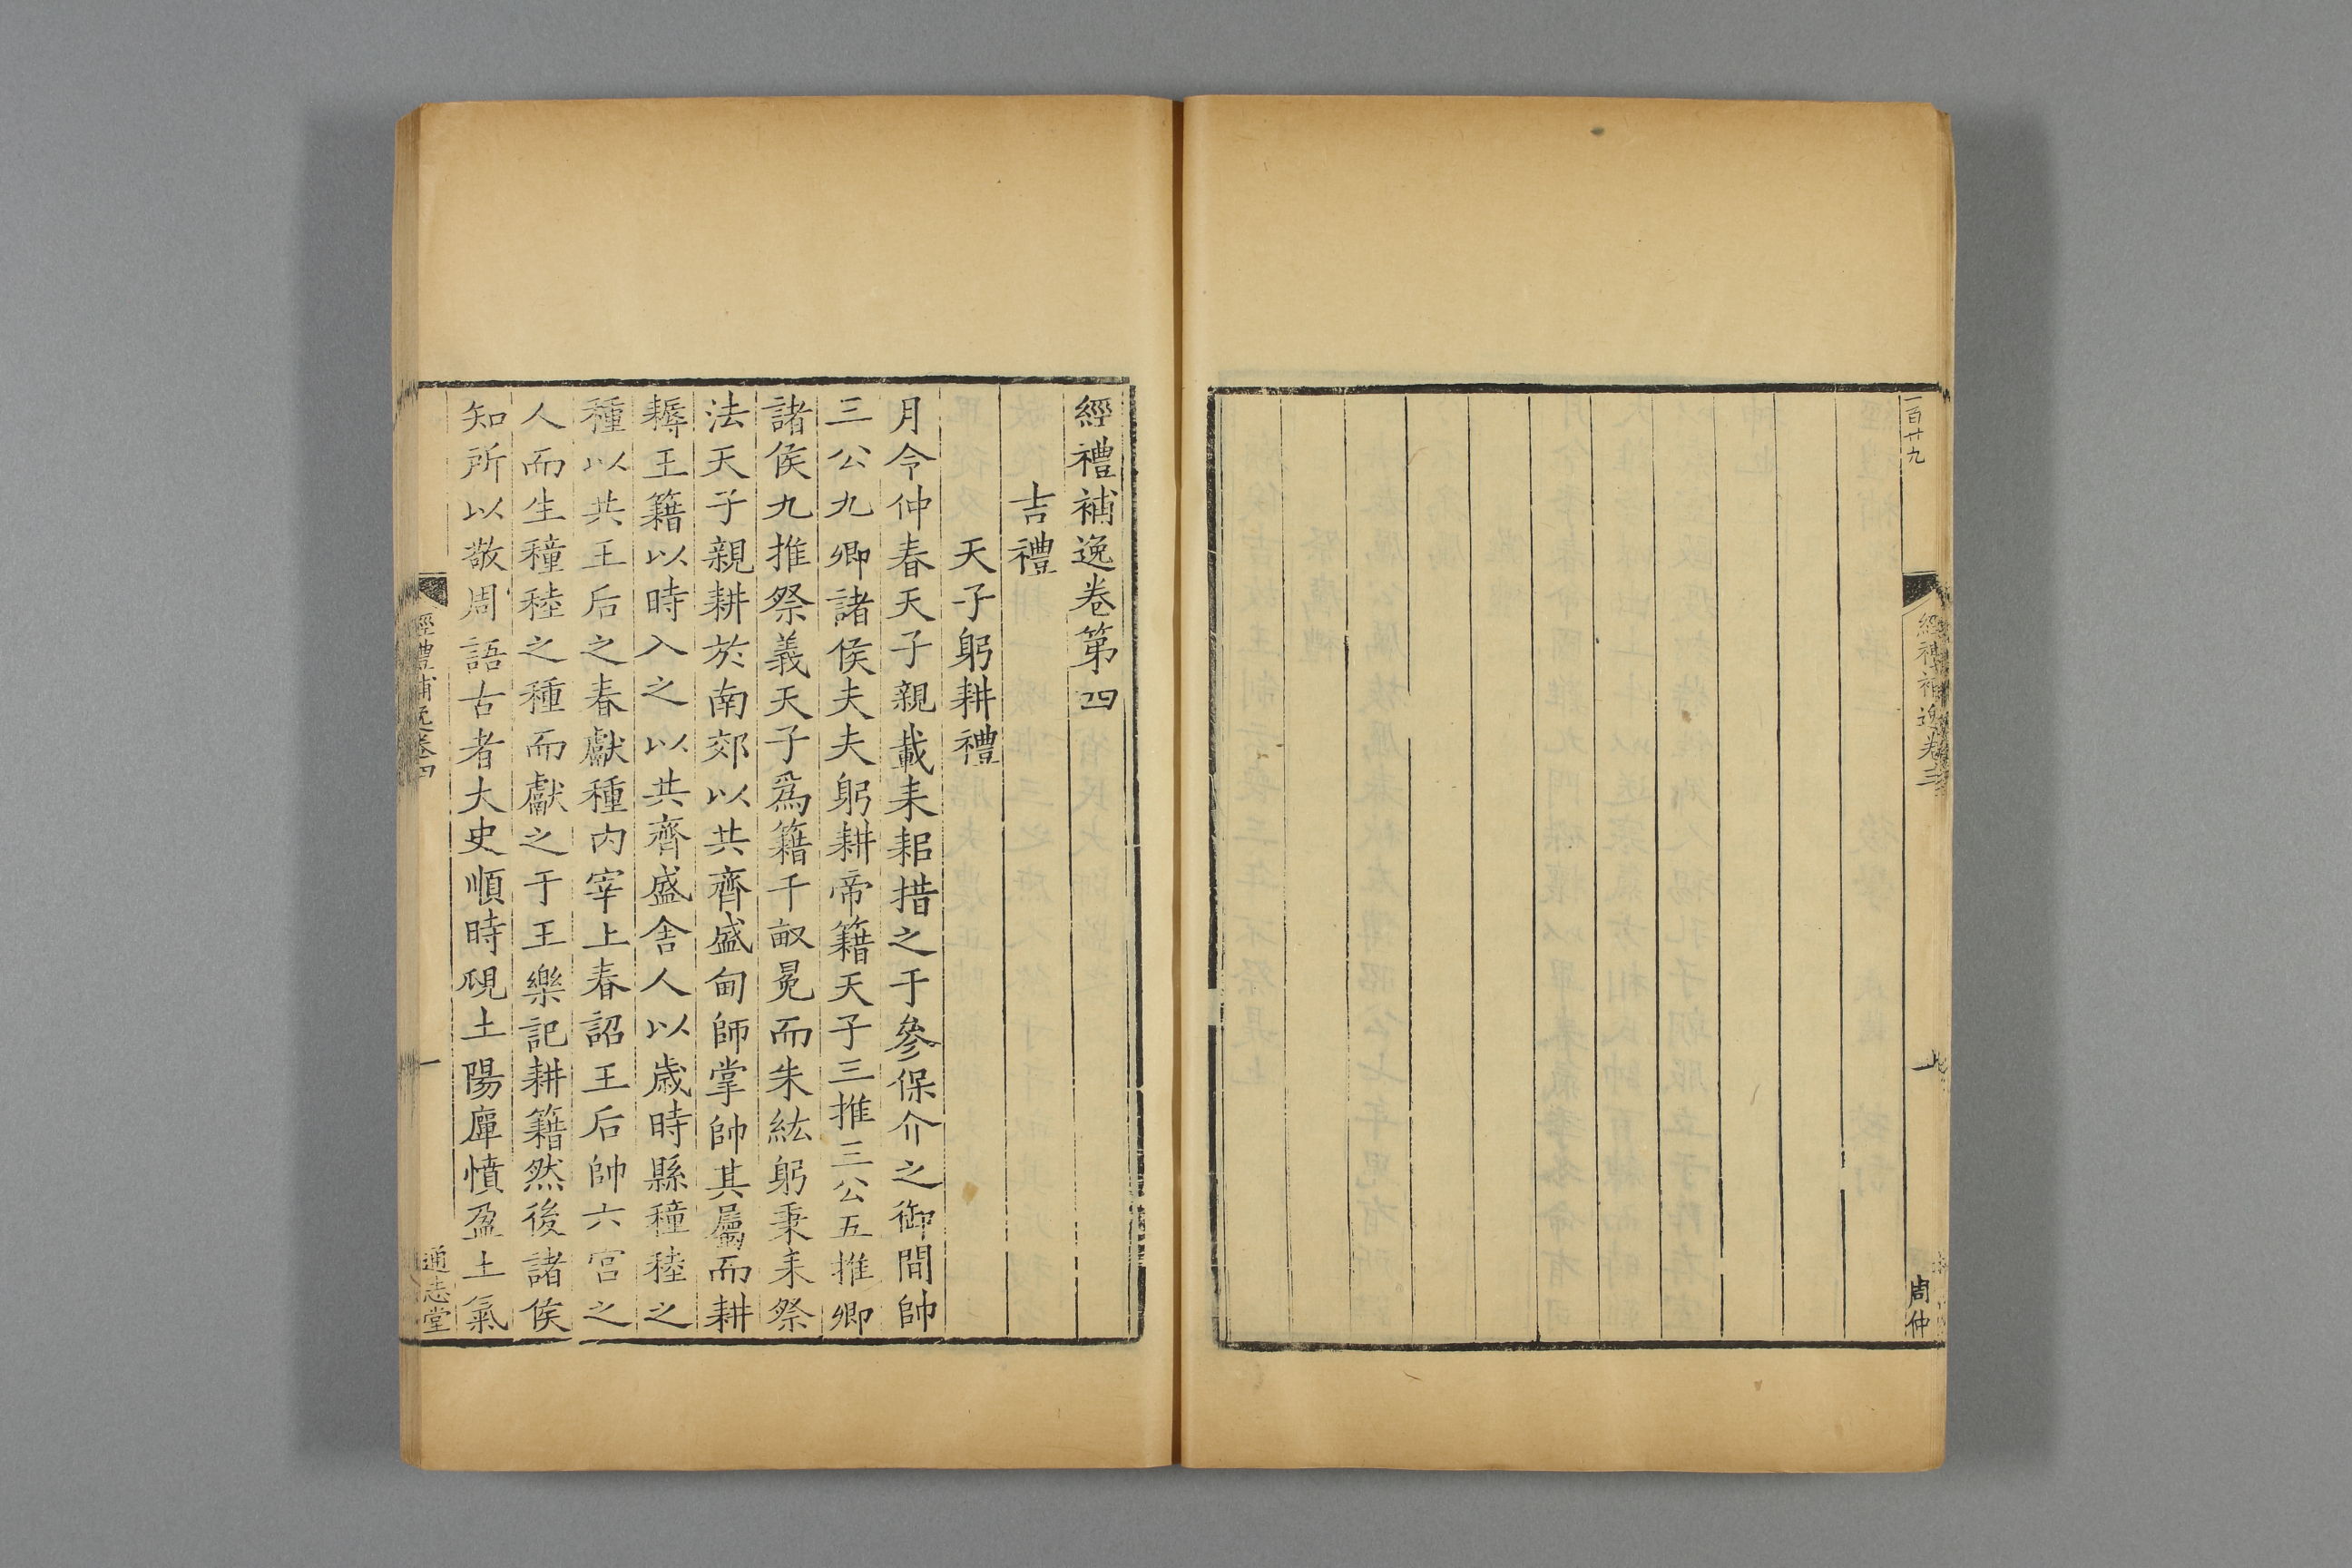 一百廿九
經禮補逸卷三
周仲
經禮補逸卷第四
吉禮
天子躬耕禮
月令仲春天子親載耒耜措之于參保介之御間帥
三公九卿諸侯大夫躬耕帝籍天子三推三公五推卿
諸侯九推祭義天子爲籍千畝冕而朱紘躬秉耒祭
法天子親耕於南郊以共齊盛甸師掌帥其屬而耕
耨王籍以時入之以共齊盛舍人以歲時縣穜稑之
種以共王后之春獻種內宰上春詔王后帥六宮之
人而生穜稑之種而獻之于王樂記耕籍然後諸侯
知所以敬周語古者大史順時覛土陽癉憤盈土氣
經禮補逸卷四
一
通志堂